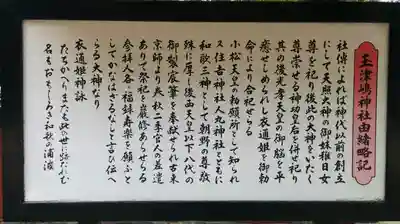 玉津嶋神社由緒略記
社傳によれば神代以前の創立
にして天照大神の御妹稚日女
尊を祀り後此の大神をいたく
尊崇せる神功皇后を併せ祀り
其の後光孝天皇の御脳を平
癒せしめられし衣通姫を御勅
命により合祀せらる
小松天皇の勅願所として知られ
ス住吉神社人丸神社とともに
和歌三神として朝野の尊敬
殊に厚く後西天皇以下八代の
御製宸筆を奉献せられ古来
京師より春秋二季宮人の差遣
ありて祭祀を厳修あらせらる
参拝人各〻福妹寿楽を願ふと
してかなはさるなしと言ひ伝へ
らる大神なり
衣通姫神詠
たちかへりまたも此の世に跡たれむ
名もおもしろき和歌の浦波